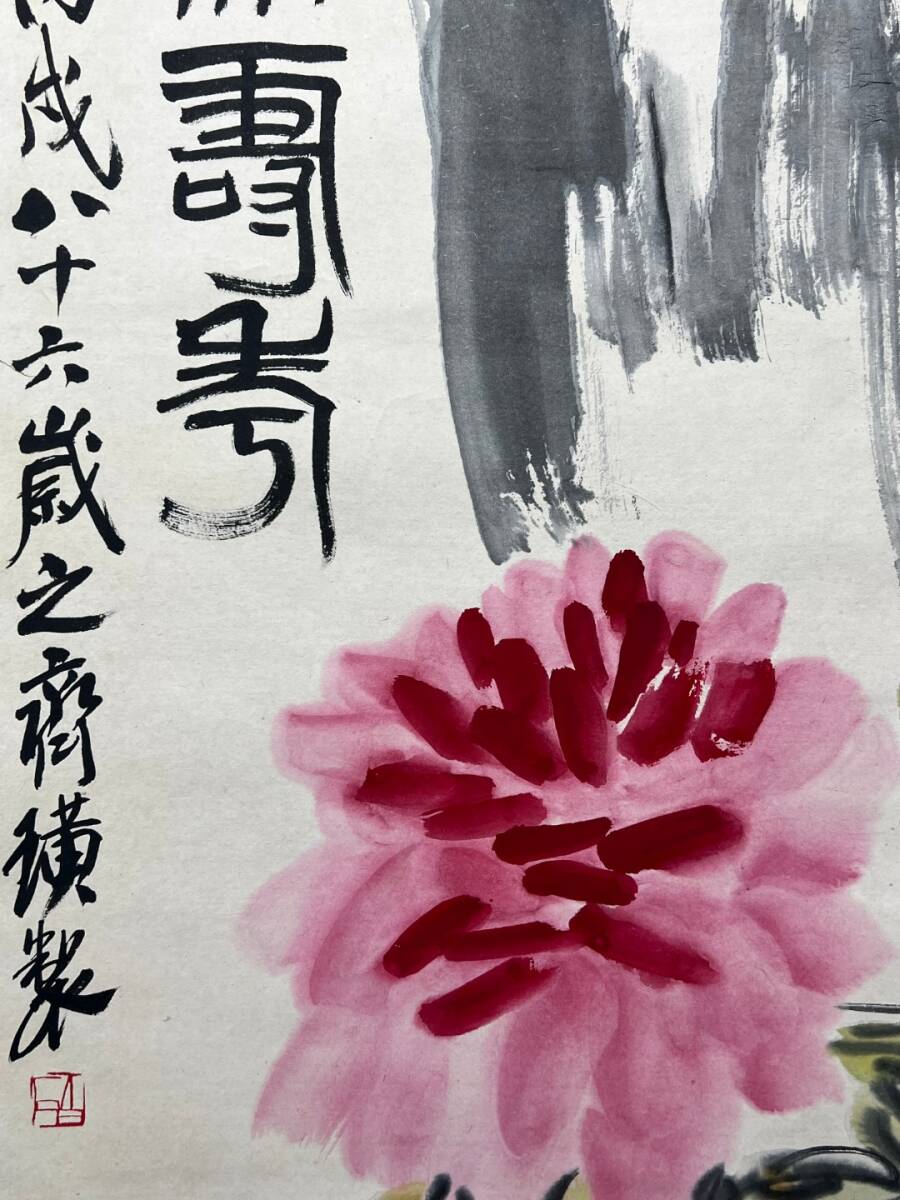 壽考
丙戌八十六歲之齊璜製